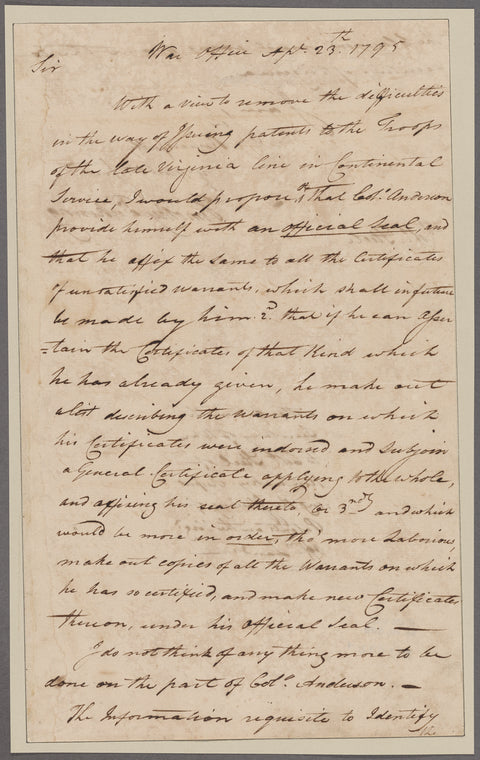 War Office Apl. 23th. 1795
Sir
With a view to remove the difficulties
in the way of Issuing patents to the Troops
of the late Virginia line in Continental
Service, I would propose, 1st that Colo. Anderson
provide himself with an official Seal, and
that he affix the same to all the Certificates
of unsatisfied warrants, which shall in future
be made by him. 2d. that if he can Asser
-tain the Certificates of that Kind which
he has already given, he make out
a list describing the Warrants on which
his Certificates were indorsed and Subjoin
a General Certificate applying to the whole,
and affixing his seal thereto, Or 3rdly and which
would be more in order, tho' more Laborious,
make out copies of all the Warrants on which
he has so certified, and make new Certificates
thereon, under his Official Seal. —
I do not think of any thing more to be
done on the part of Colo. Anderson. —
The Information requisite to Identify